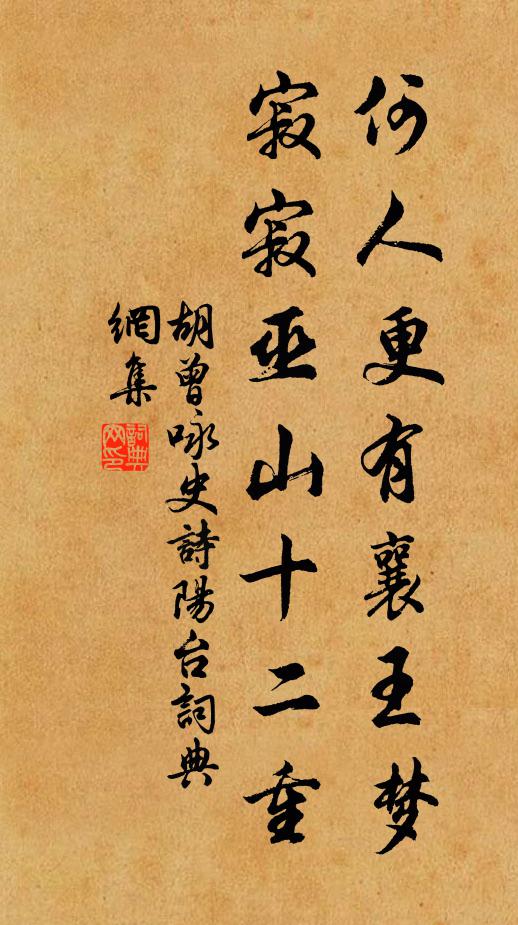 何人更有襄王梦
寂寂巫山十二重
胡曾咏史詩陽台詞典
網集
詞典
网印